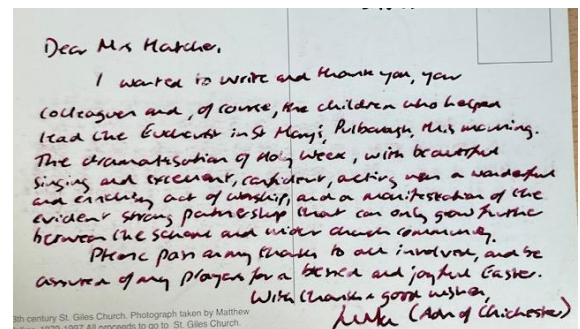 Dear Mrs Hatcher,
I wanted to write and thank you, your
colleagues and, of course, the children who helped
lead the Eucharist in St Mary's, Pulborough, this morning.
The dramatisation of Holy Week, with beautiful
singing and excellent, confident, acting was a wonderful
and enriching act of worship, and a manifestation of the
evident strong partnership that can only grow further
between the school and wider church community.
Please pass on my thanks to all involved, and be
assured of my prayers for a blessed and joyful Easter.
With thanks & good wishes,
Luke (Adn of Chichester)
8th century St. Giles Church. Photograph taken by Matthew
1979-1997 All proceeds to go to St. Giles Church.